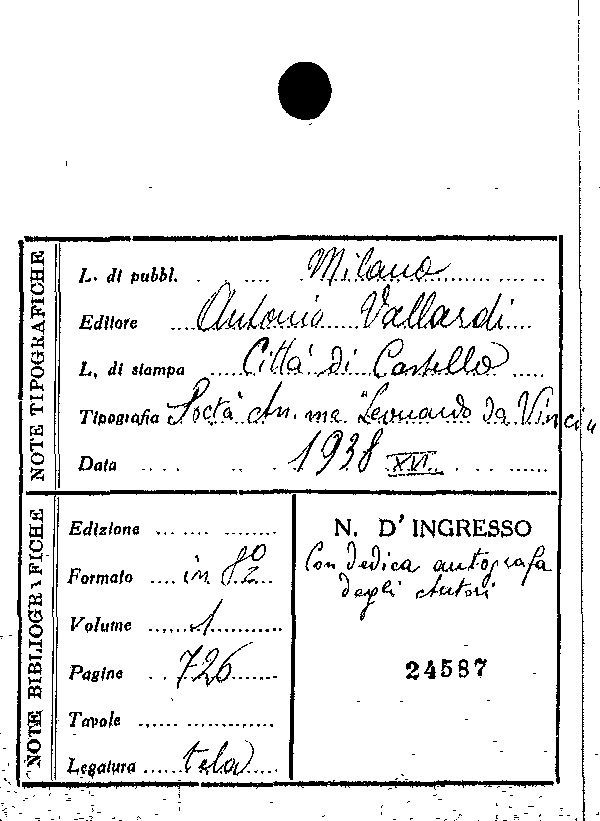 NOTE TIPOGRAFICHE
L. di pubbl. Milano
Editore Antonio Vallardi
L. di stampa Città di Castello
Tipografia Soctà An. ma "Leonardo da Vinci"
Data 1938 XVI
NOTE BIBLIOGRAFICHE
Edizione
Formato in 8º
Volume 1
Pagine 726
Tavole
Legatura tela
N. D'INGRESSO
Con dedica autografa
degli Autori
24587